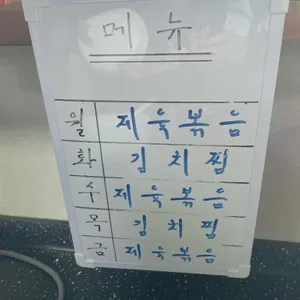 메뉴
월 제육볶음
화 김치찜
수 제육볶음
목 김치찜
금 제육볶음